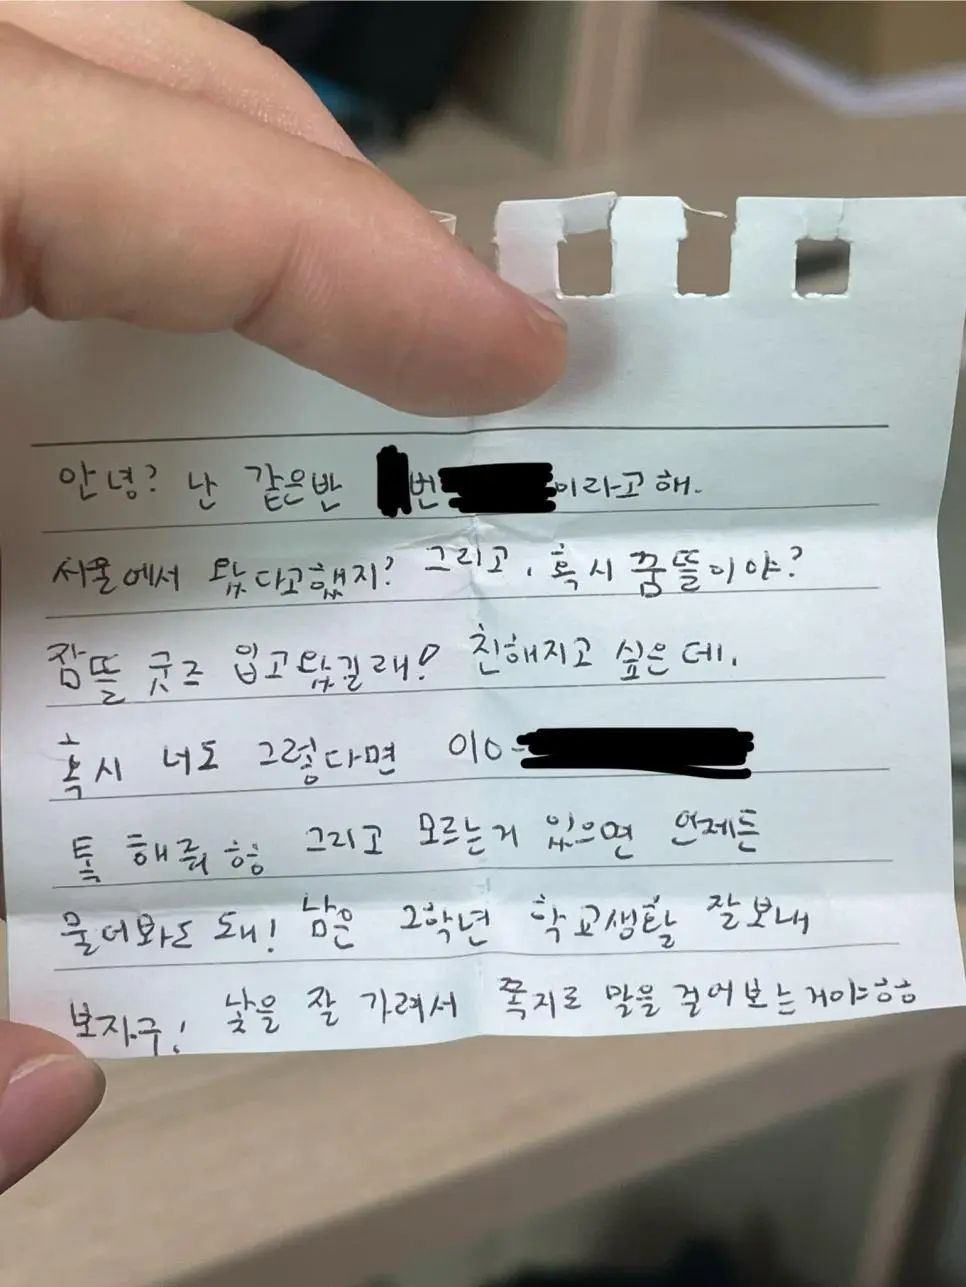 안녕? 난 같은반 번 이라고 해.
서울에서 왔다고했지? 그리고, 혹시 꿈뜰이야?
잠뜰 굿즈 입고왔길래! 친해지고 싶은데,
혹시 너도 그렇다면 010-
톡 해줘ㅎㅎ 그리고 모르는거 있으면 언제든
물어봐도 돼! 남은 2학년 학교생활 잘 보내
보자구! 낯을 잘 가려서 쪽지로 말을 걸어보는거야ㅎㅎ